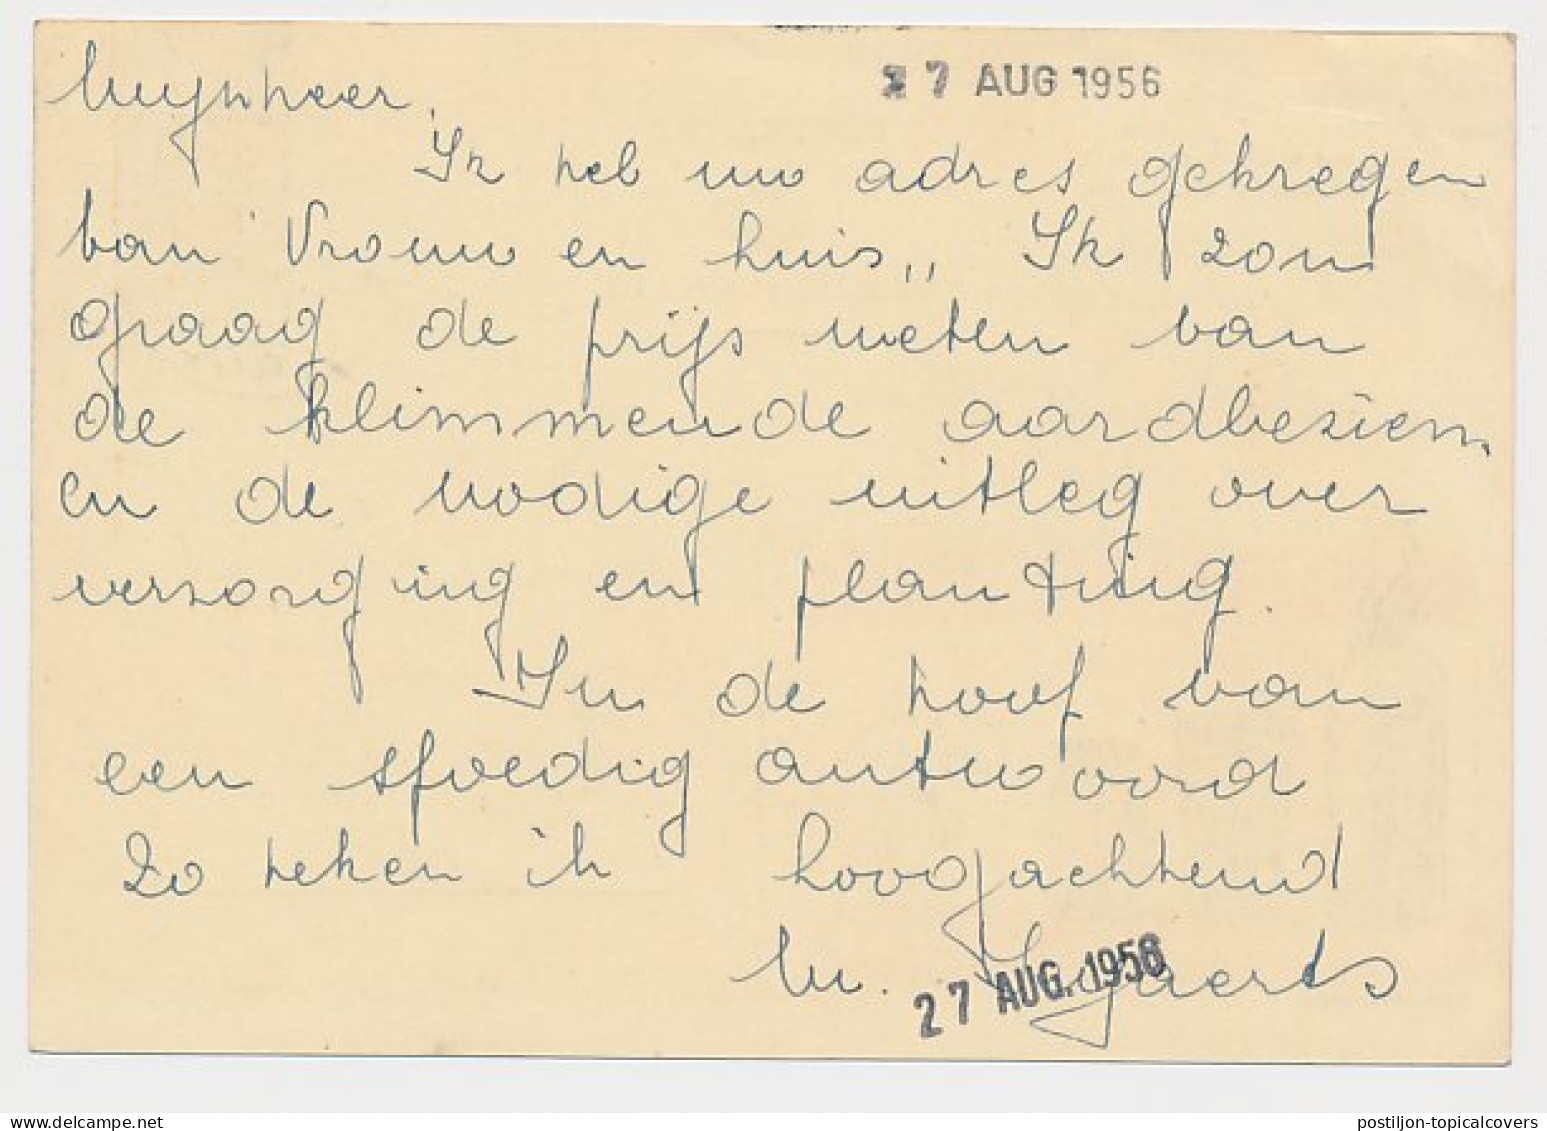 Mijnheer,
27 AUG 1956
Ik heb uw adres gekregen
van Vrouw en huis,, Ik zou
graag de prijs weten van
de klimmende aardbeziën.
en de nodige uitleg over
verzorging en planting.
In de hoof van
een spoedig antwoord
Zo teken ik hoogachtend
M.
27 AUG. 1956
postiljon-topicalcovers